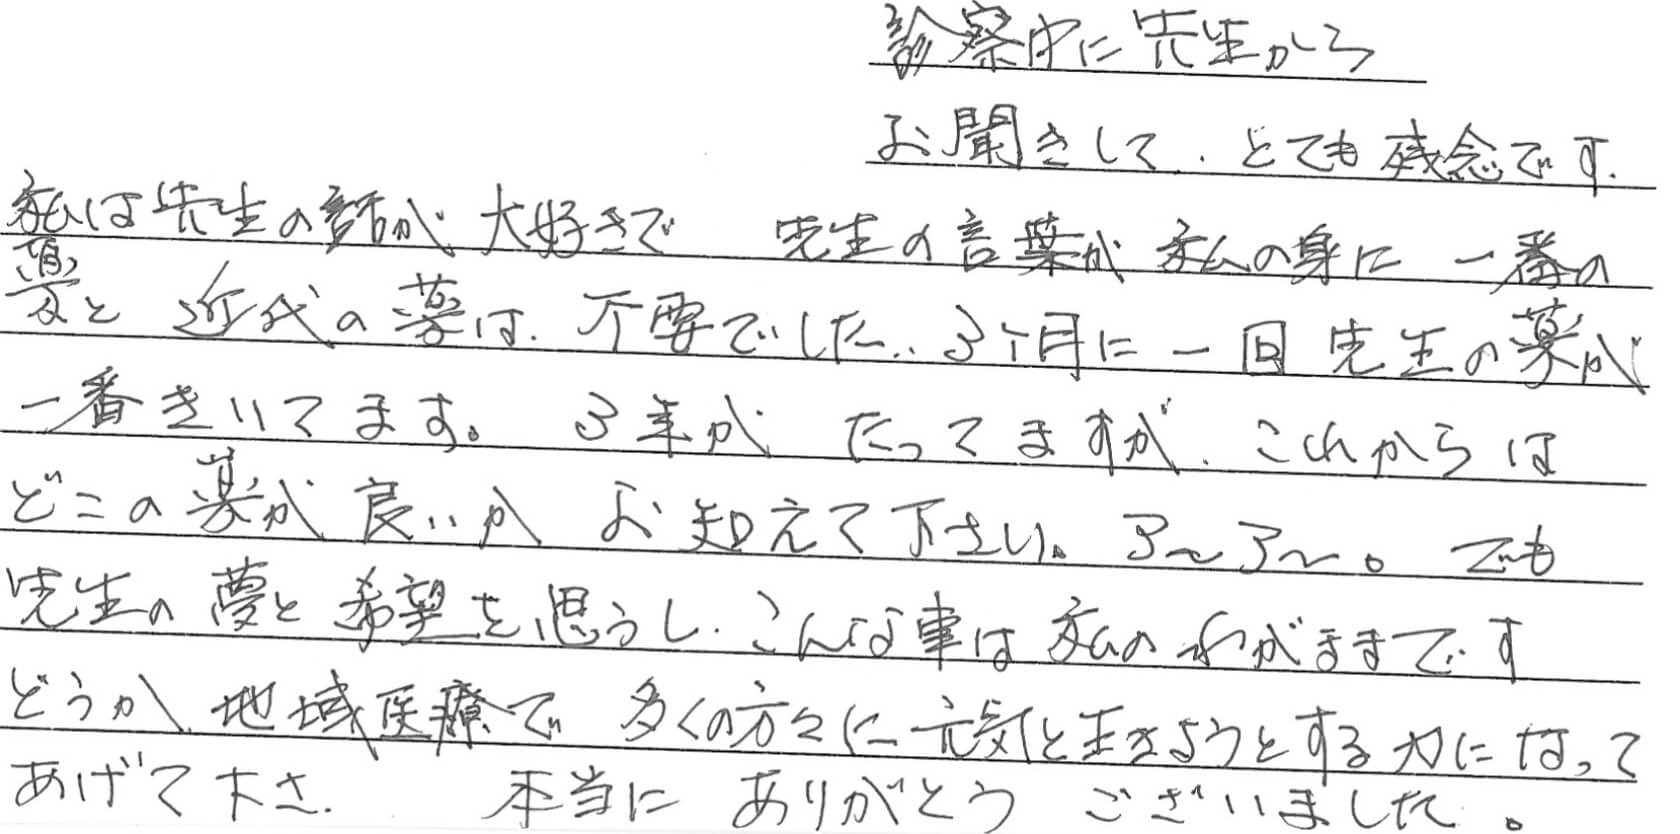 診察中に先生から
お聞きして、とても残念です.
私は先生の話が大好きで 先生の言葉が私の身に一番の
薬と 近代の薬は、不要でした.. 3ヶ月に一回先生の薬が
一番きいてます。 3年が たってますが、これからは
どこの薬が良いか お知えて下さい。ア〜ア〜。でも
先生の夢と希望を思うし、こんな事は私のわがままです
どうか、地域医療で 多くの方々に元気と生きようとする力になって
あげて下さ. 本当に ありがとう ございました。